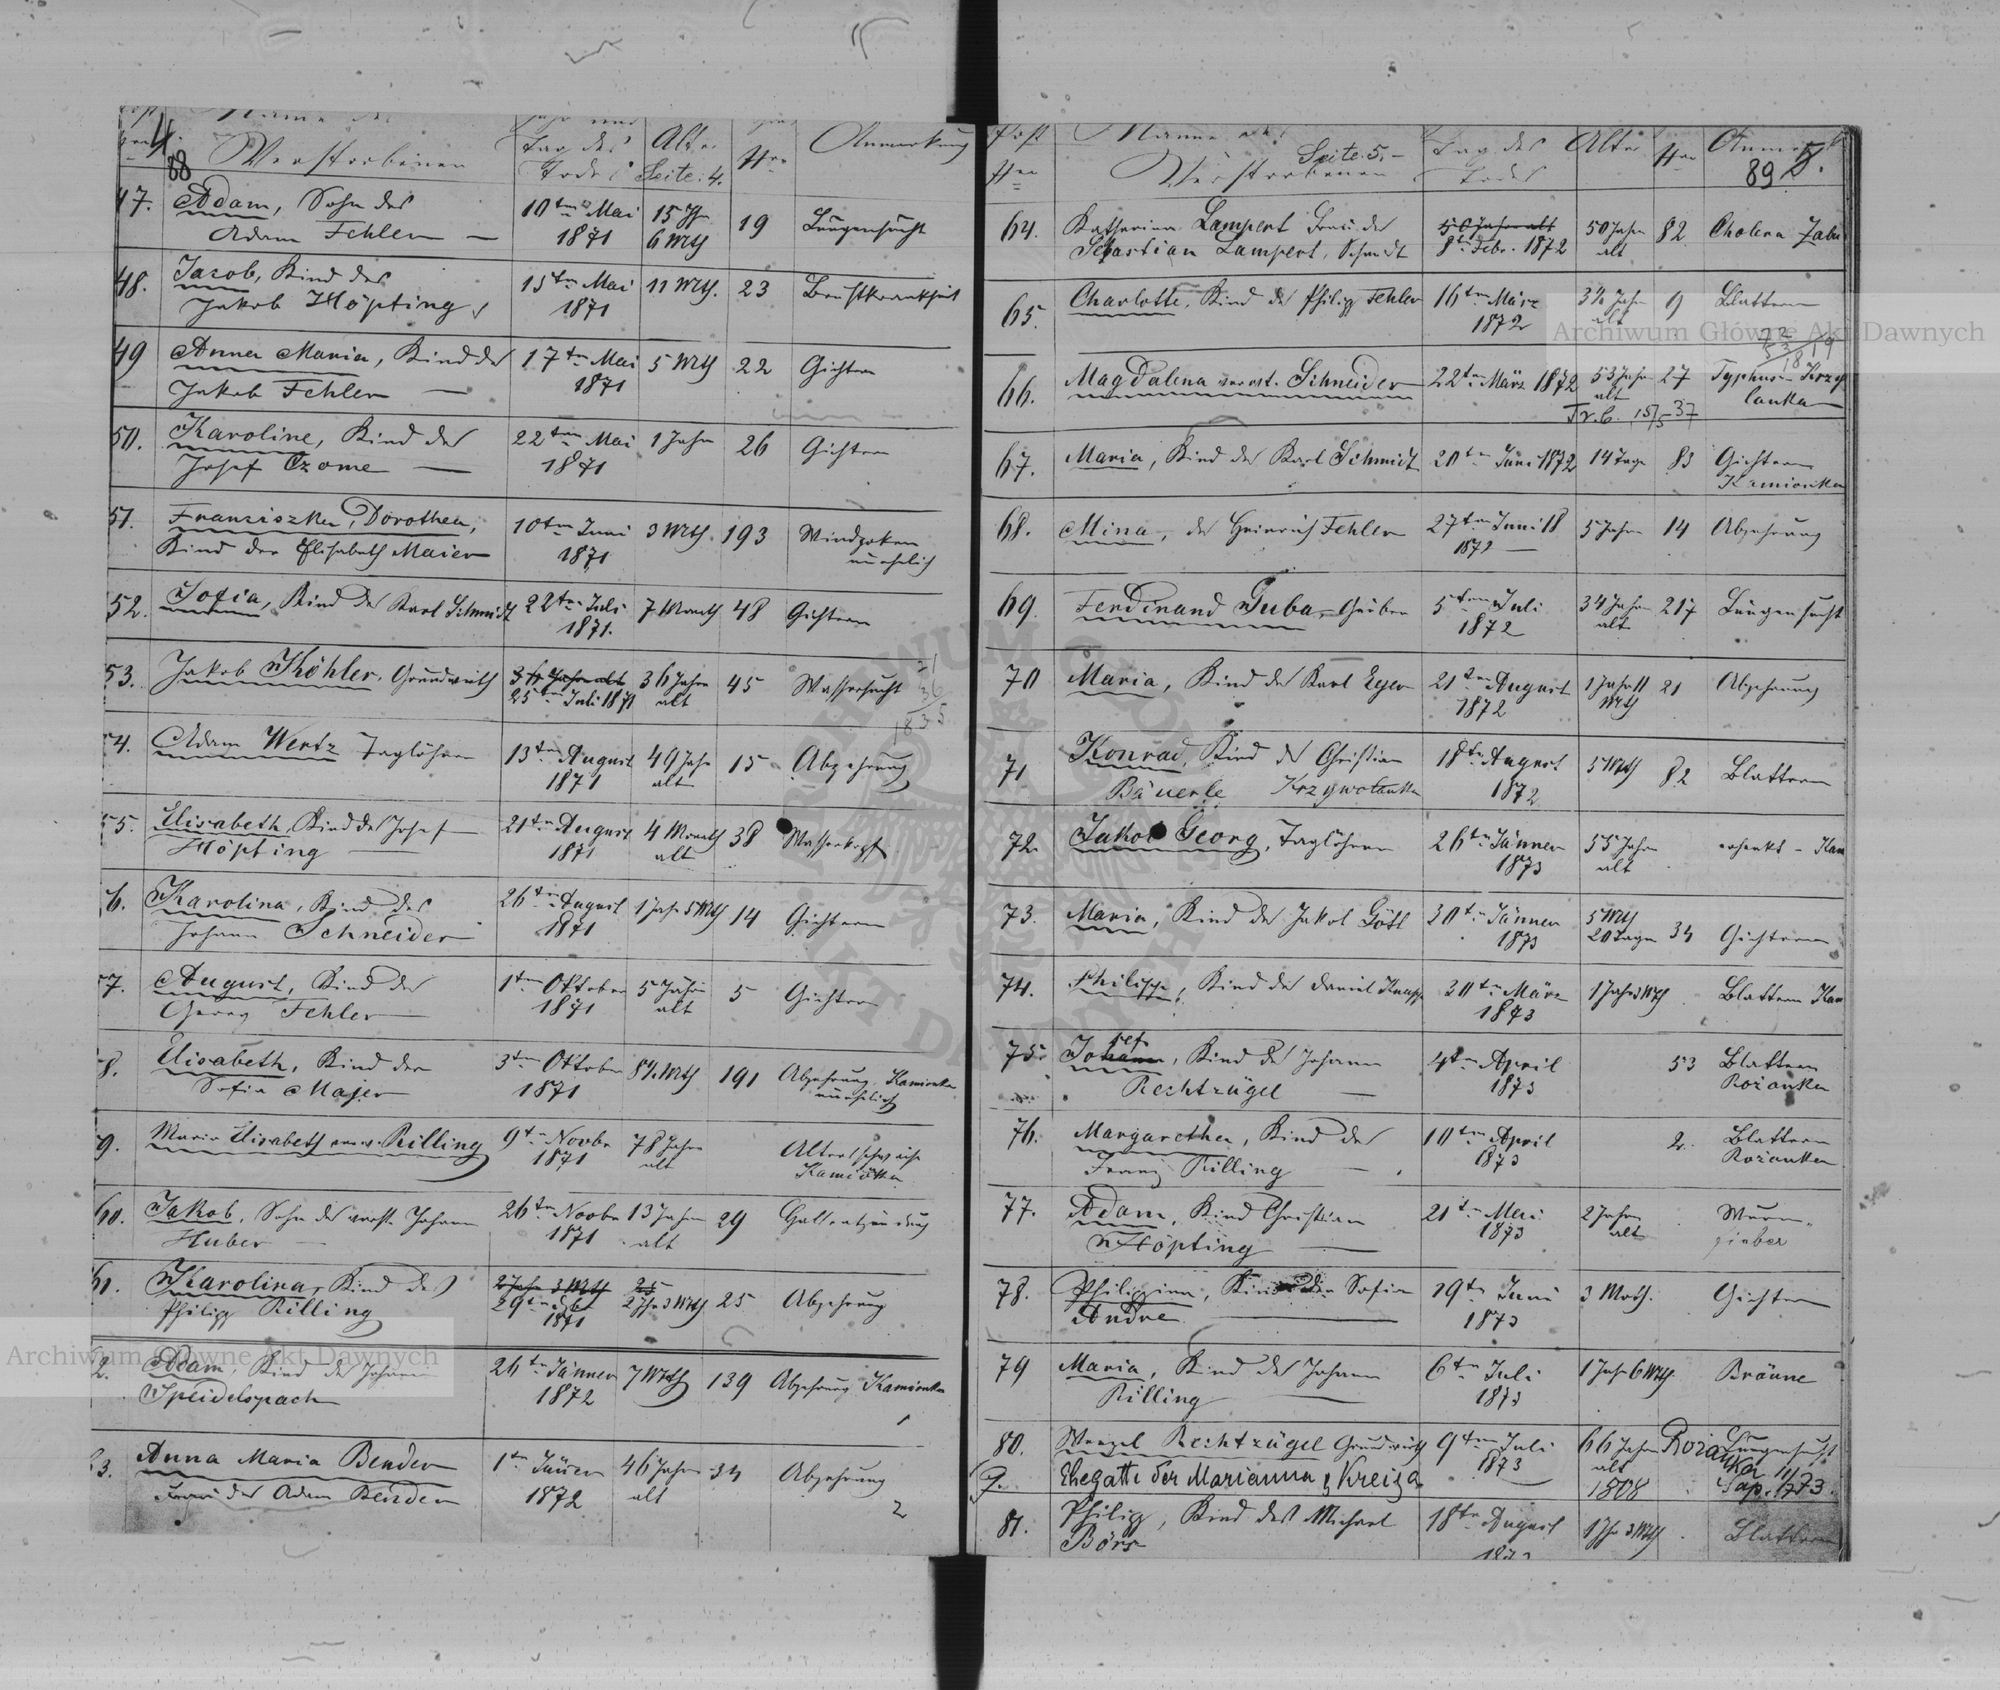 4.
88
Verstorbenen
Tag des
Todes
Alter
Seite: 4.
Nro
Anmerkung
47. Adam, Sohn des
Adam Fehler —
10ten Mai
1871
15 Jh
6 Mth
19
Lungensucht
48. Jacob, Kind des
Jakob Höpting
15ten Mai
1871
11 Mth.
23
Brustkrankheit
49 Anna Maria, Kind des
Jakob Fehler —
17ten Mai
1871
5 Mth
22
Gichter
50. Karoline, Kind des
Josef Czome —
22ten Mai
1871
1 Jahr
26
Gichter
51. Franziszka, Dorothea,
Kind der Elisabeth Maier
10ten Juni
1871
3 Mth.
193
Windpoken
unehelich
52. Sofia, Kind des Karl Schmidt
22ten Juli
1871.
7 Monath
48
Gichtern
53. Jakob Köhler, Grundwirth
36 Jahre alt
25ten Juli 1871
36 Jahre
alt
45
Wassersucht
36
1835
54. Adam Wertz Taglöhner
13ten August
1871
49 Jahr
alt
15
Abzehrung
55. Elisabeth, Kind des Josef
Höpting —
21ten August
1871
4 Monath
alt
38
Wasserkopf
6. Karolina, Kind des
Johann Schneider
26ten August
1871
1 Jahr 5 Mth
14
Gichtern
7. August, Kind des
Georg Fehler
1ten Oktober
1871
5 Jahre
alt
5
Gichter
8. Elisabeth, Kind der
Sofia Majer
3ten Oktober
1871
8½ Mth
191
Abzehrung, Kamionka
unehelich
9. Maria Elisabeth verw. Rilling
9ten Novbr
1871
78 Jahre
alt
Altersschwäche
Kamionka
60. Jakob, Sohn des verst. Johann
Huber —
26ten Novbr
1871
13 Jahre
alt
29
61. Karolina, Kind des
Philipp Rilling
2 Jahr 3 Mth
1871
2 Jhr 3 Mth
25
Abzehrung
2. Adam, Kind des Johann
Speidelspach
26ten Jänner
1872
7 Mth
139
Abzehrung Kamionka
3. Anna Maria Bender
Frau des Adam Bender
1ten Jäner
1872
46 Jahre
alt
34
Abzehrung
2
Post
Nro
Name des
Seite: 5.
Verstorbenen
Tag des
Todes
Alter
Nro
89 5.
64. Katharina Lampert Frau des
Sebastian Lampert, Schmidt
50 Jahre alt
8ten Febr. 1872
50 Jahre
alt
82
Cholera
65. Charlotte, Kind des Philipp Fehler
16ten März
1872
3½ Jahr
alt
9
Blattern
66. Magdalena verwt. Schneider
22ten März 1872
53 Jahre
alt
27
Typhus
67. Maria, Kind des Karl Schmidt
20ten Juni 1872
14 Tage
83
Gichtern
Kamionka
68. Mina, des Heinrich Fehler
27ten Juni 18
1872 —
5 Jahre
14
Abzehrung
69. Ferdinand Guba, Gerber
5ten Juli
1872
34 Jahre
alt
217
Lungensucht
70 Maria, Kind des Karl Eger
21ten August
1872
1 Jahr 11
Mth
21
Abzehrung
71 Konrad, Kind des Christian
Bäuerle Krzywolanka
18ten August
1872
5 Mth
82
Blattern
72. Jakob Georg, Taglöhner
26ten Jänner
1873
55 Jahre
alt
73. Maria, Kind des Jakob Göttl
30ten Jänner
1873
5 Mth
20 Tage
34
Gichtern
74. Philipp, Kind des Daniel Knapp
30ten März
1873
1 Jahr 3 Mth
Blattern Kam
75. Johann
sef
, Kind des Johann
Rechtzügel —
4ten April
1873
53
Blattern
Rożanka
76. Margaretha, Kind des
Franz Rilling —
10ten April
1873
2.
Blattern
Rożanka
77. Adam, Kind Christian
Höpting —
21ten Mai
1873
2 Jahre
alt
Wurm-
fieber
78. Philippina, Kind der Sofia
Andre —
19ten Juni
1873
3 Moth.
Gichter
79 Maria, Kind des Johann
Rilling —
6ten Juli
1873
1 Jahr 6 Mth
Bräune
80. Wenzel Rechtzügel Grundwirth
Ehegatte der Marianna g. Kreiza
9ten Juli
1873
66 Jahre
alt
1808
Rożanka
Lungensucht
81. Philipp, Kind des Michael
Börs
18ten August
1873
1 Jhr 3 Mth
Blattern
Archiwum Główne Akt Dawnych
Archiwum Główne Akt Dawnych
ARCHIWUM GŁÓWNE AKT DAWNYCH